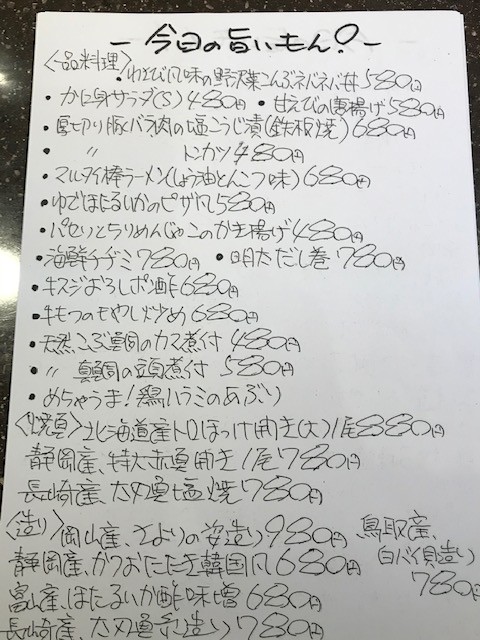 －今日の旨いもん！－
〈一品料理〉
・ゆどび風味の野沢菜こんぶネバネバ丼 580円
・かに身サラダ(S) 480円 ・甘えびの唐揚げ 580円
・厚切り豚バラ肉の塩こうじ漬(鉄板焼) 680円
・ 〃 トンカツ 480円
・マルタイ棒ラーメン(しょう油とんこつ味) 680円
・ゆでほたるいかのピザ風 580円
・パセリとちりめんじゃこのかき揚げ 480円
・海鮮チヂミ 780円 ・明太だし巻 780円
・牛スジおろしポン酢 680円
・牛もつのもやし炒め 680円
・天然こぶ鯛のカマ煮付 480円
・〃 真鯛の頭煮付 580円
・めちゃうま！鶏ハラミのあぶり
〈焼魚〉北海道産トロほっけ開き(大)1尾 880円
静岡産、特大赤魚開き1尾 780円
長崎産、太刀魚塩焼 780円
〈造り〉岡山産、さよりの姿造り 980円
鳥取産、白バイ貝造り 780円
静岡産、かつおたたき韓国風 680円
富山産、ほたるいか酢味噌 680円
長崎産、太刀魚 造り 780円